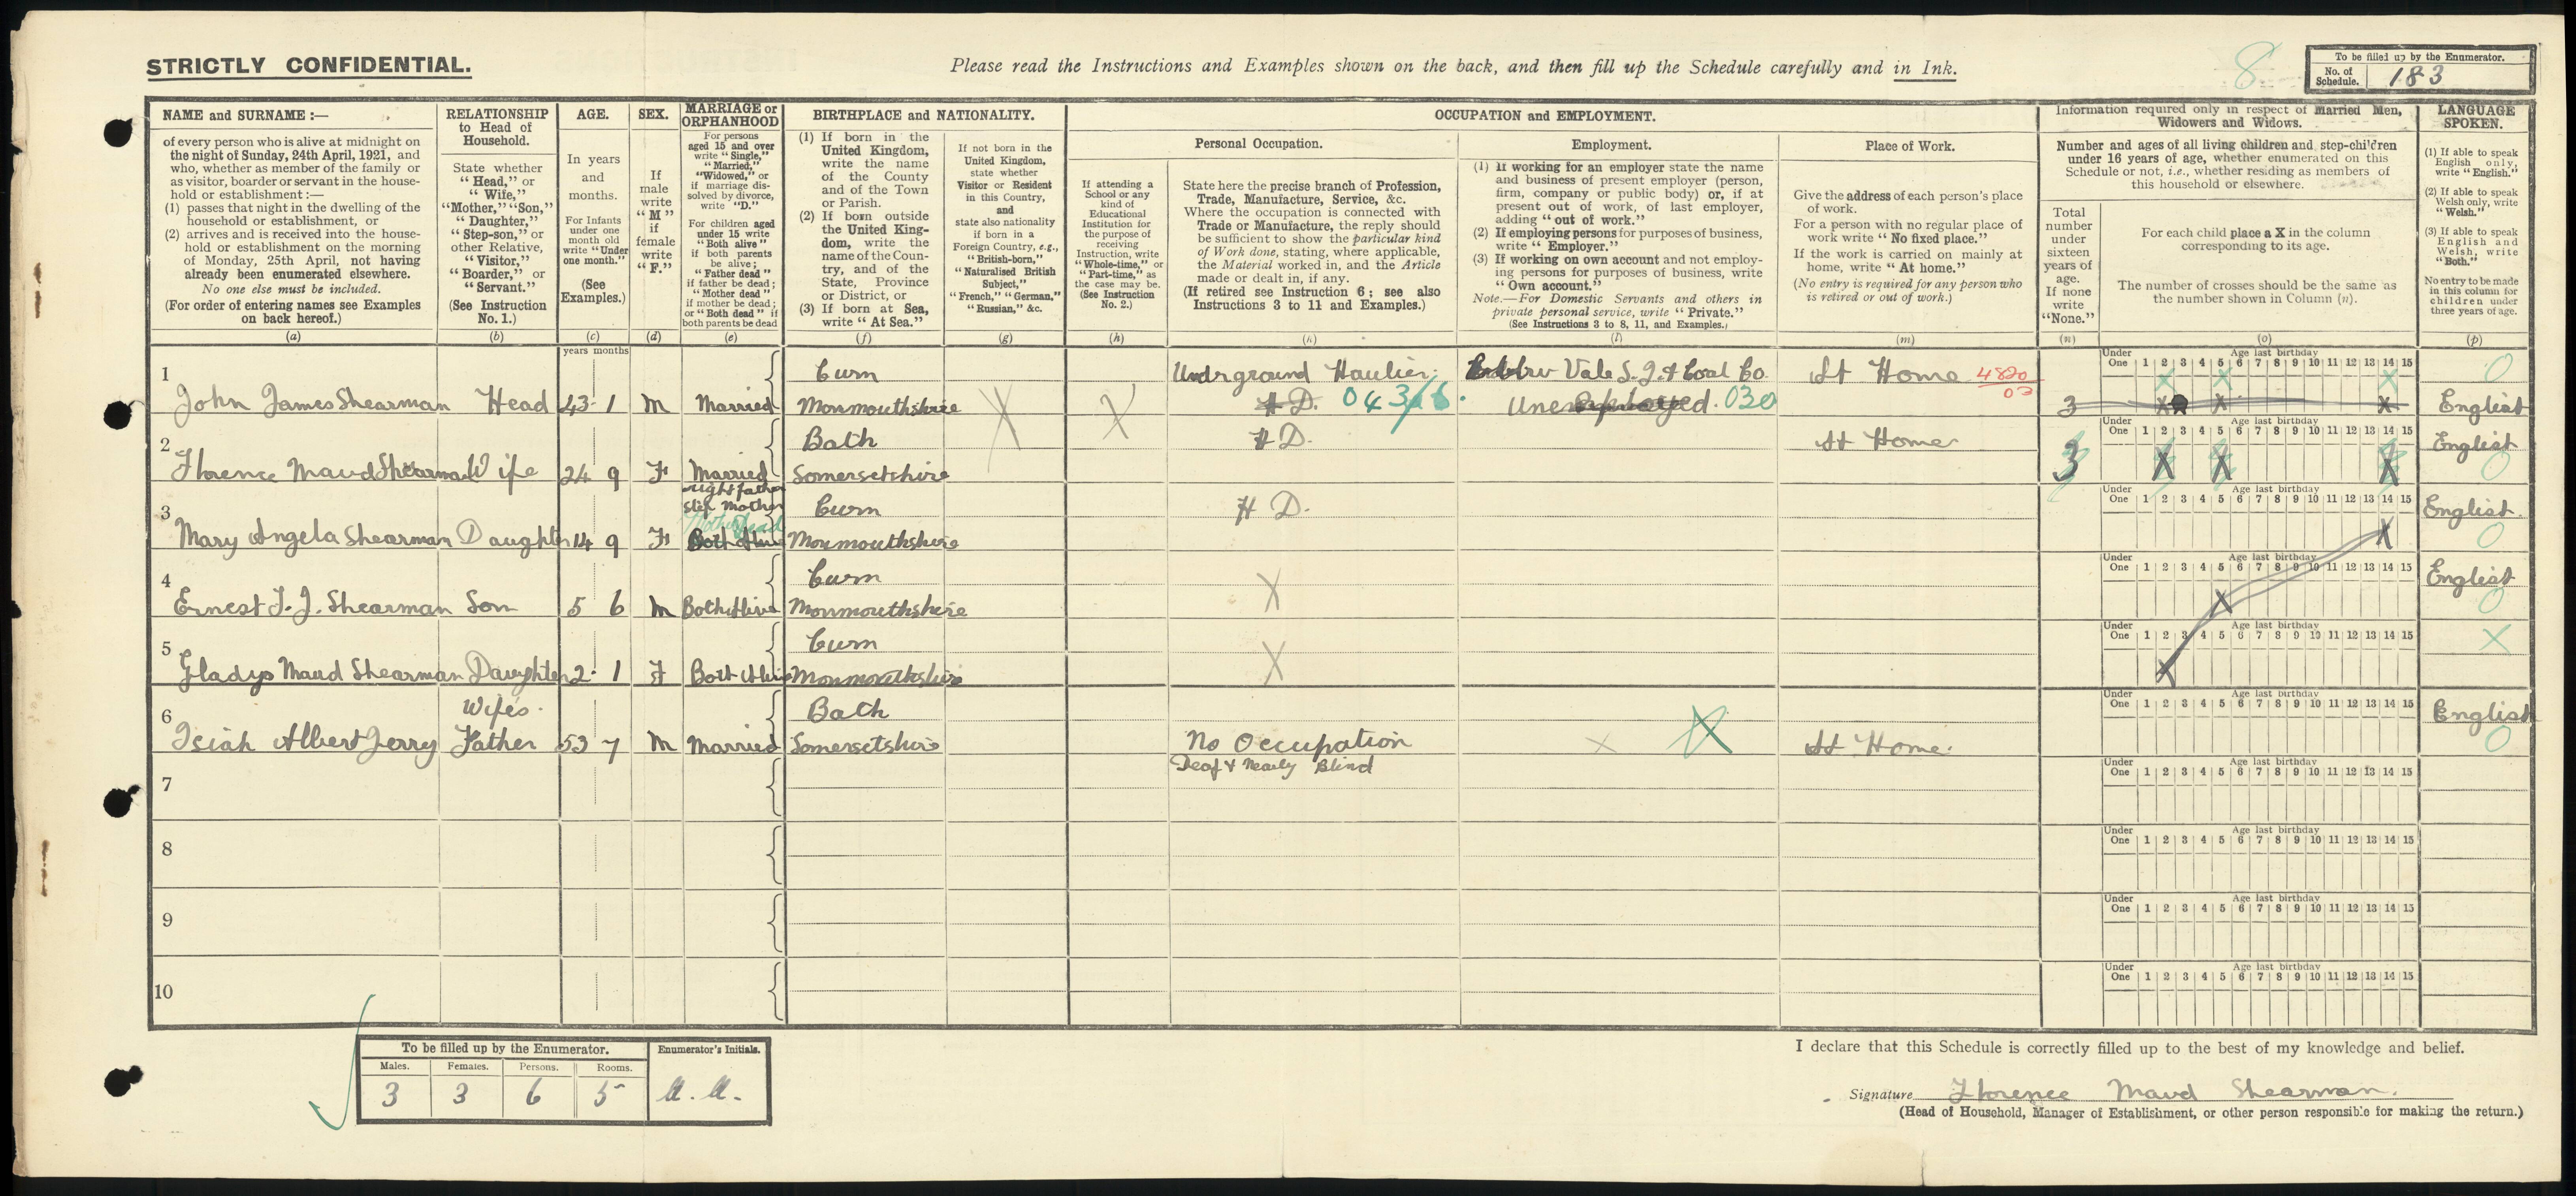 STRICTLY CONFIDENTIAL.
Please read the Instructions and Examples shown on the back, and then fill up the Schedule carefully and in Ink.
8
To be filled up by the Enumerator.
No. of Schedule. 183
NAME and SURNAME :—
of every person who is alive at midnight on
the night of Sunday, 24th April, 1921, and
who, whether as member of the family or
as visitor, boarder or servant in the house-
hold or establishment :—
(1) passes that night in the dwelling of the
household or establishment, or
(2) arrives and is received into the house-
hold or establishment on the morning
of Monday, 25th April, not having
already been enumerated elsewhere.
No one else must be included.
(For order of entering names see Examples
on back hereof.)
(a)
RELATIONSHIP
to Head of
Household.
State whether
"Head," or
"Wife,"
"Mother," "Son,"
"Daughter,"
"Step-son," or
other Relative,
"Visitor,"
"Boarder," or
"Servant."
(See Instruction
No. 1.)
(b)
AGE.
In years
and
months.
For Infants
under one
month old
write "Under
one month."
(See
Examples.)
(c)
SEX.
If
male
write
"M"
if
female
write
"F."
(d)
MARRIAGE or
ORPHANHOOD
For persons
aged 15 and over
write "Single,"
"Married,"
"Widowed," or
if marriage dis-
solved by divorce,
write "D."
For children aged
under 15 write
"Both alive"
if both parents
be alive;
"Father dead"
if father be dead;
"Mother dead"
if mother be dead;
or "Both dead" if
both parents be dead
(e)
BIRTHPLACE and NATIONALITY.
(1) If born in the
United Kingdom,
write the name
of the County
and of the Town
or Parish.
(2) If born outside
the United King-
dom, write the
name of the Coun-
try, and of the
State, Province
or District, or
(3) If born at Sea,
write "At Sea."
(f)
If not born in the
United Kingdom,
state whether
Visitor or Resident
in this Country,
and
state also nationality
if born in a
Foreign Country, e.g.,
"British-born,"
"Naturalised British
Subject,"
"French," "German,"
"Russian," &c.
(g)
OCCUPATION and EMPLOYMENT.
If attending a
School or any
kind of
Educational
Institution for
the purpose of
receiving
Instruction, write
"Whole-time," or
"Part-time," as
the case may be.
(See Instruction
No. 2.)
(h)
Personal Occupation.
State here the precise branch of Profession,
Trade, Manufacture, Service, &c.
Where the occupation is connected with
Trade or Manufacture, the reply should
be sufficient to show the particular kind
of Work done, stating, where applicable,
the Material worked in, and the Article
made or dealt in, if any.
(If retired see Instruction 6; see also
Instructions 3 to 11 and Examples.)
(k)
Employment.
(1) If working for an employer state the name
and business of present employer (person,
firm, company or public body) or, if at
present out of work, of last employer,
adding "out of work."
(2) If employing persons for purposes of business,
write "Employer."
(3) If working on own account and not employ-
ing persons for purposes of business, write
"Own account."
Note.—For Domestic Servants and others in
private personal service, write "Private."
(See Instructions 3 to 8, 11, and Examples.)
(l)
Place of Work.
Give the address of each person's place
of work.
For a person with no regular place of
work write "No fixed place."
If the work is carried on mainly at
home, write "At home."
(No entry is required for any person who
is retired or out of work.)
(m)
Information required only in respect of Married Men,
Widowers and Widows.
Number and ages of all living children and step-children
under 16 years of age, whether enumerated on this
Schedule or not, i.e., whether residing as members of
this household or elsewhere.
Total
number
under
sixteen
years of
age.
If none
write
"None."
(n)
For each child place a X in the column
corresponding to its age.
The number of crosses should be the same as
the number shown in Column (n).
(o)
LANGUAGE
SPOKEN.
(1) If able to speak
English only,
write "English."
(2) If able to speak
Welsh only, write
"Welsh."
(3) If able to speak
English and
Welsh, write
"Both."
No entry to be made
in this column for
children under
three years of age.
(p)
years months
Under One 1 2 3 4 5 6 7 8 9 10 11 12 13 14 15
Age last birthday
1 John James Shearman Head 43 1 M Married Cwm Monmouthshire
Undrground Haulier H D. 043/6 Vale S. I. & Coal Co. Unemployed. 030 At Home 4820 03 3 English
2 Florence Maud Shearman Wife 24 9 F Married Bath Somersetshire H D. At Home 3 English
right father
step mother
Mother dead
3 Mary Angela Shearman Daughter 14 9 F Both Alive Cwm Monmouthshire H D. English
4 Ernest J. J. Shearman Son 5 6 M Both Alive Cwm Monmouthshire X English
5 Gladys Maud Shearman Daughter 2 1 F Both Alive Cwm Monmouthshire X
6 Isiah Albert Jerry Wife's Father 53 7 M Married Bath Somersetshire No Occupation
Deaf & Nearly Blind At Home. English
7
8
9
10
To be filled up by the Enumerator.
Males. Females. Persons. Rooms.
3 3 6 5
Enumerator's Initials.
I declare that this Schedule is correctly filled up to the best of my knowledge and belief.
Signature Florence Maud Shearman.
(Head of Household, Manager of Establishment, or other person responsible for making the return.)